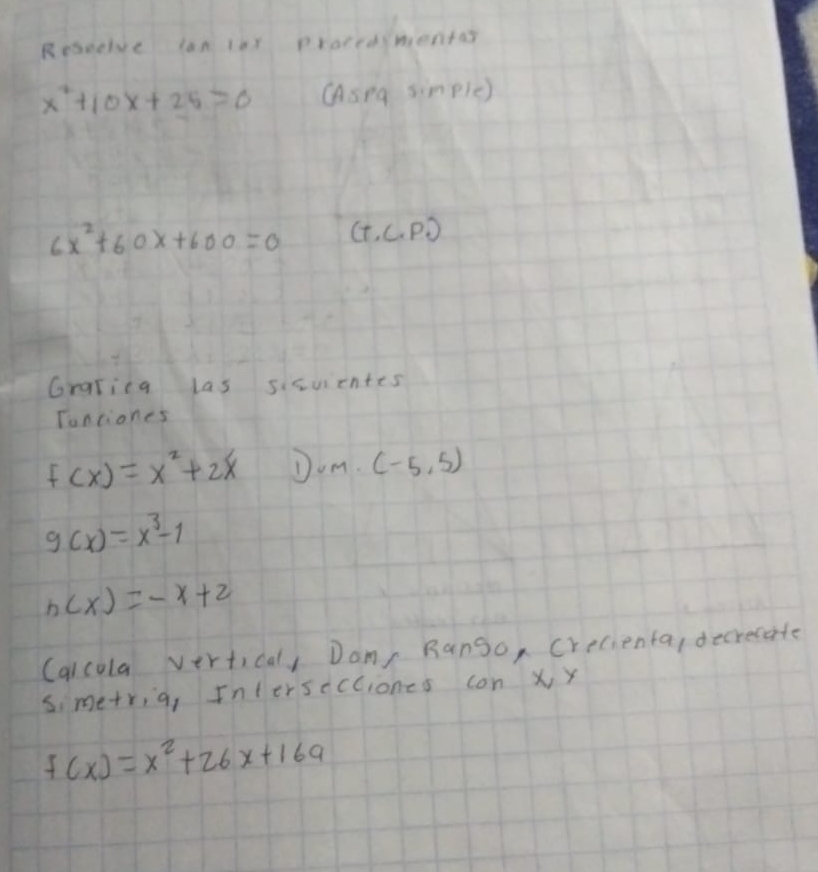 Resuelve con los procedimientos
x²+10x+25=0 (Aspa simple)
6x²+60x+600=0 (T.C.P.)
Grafica las siguientes
funciones
f(x)=x²+2x Dom. (-5,5)
g(x)=x³-1
h(x)=-x+2
Calcula vertical, Dom, Rango, Crecienta, decreciente
simetria, Intersecciones con x, y
f(x)=x²+26x+169